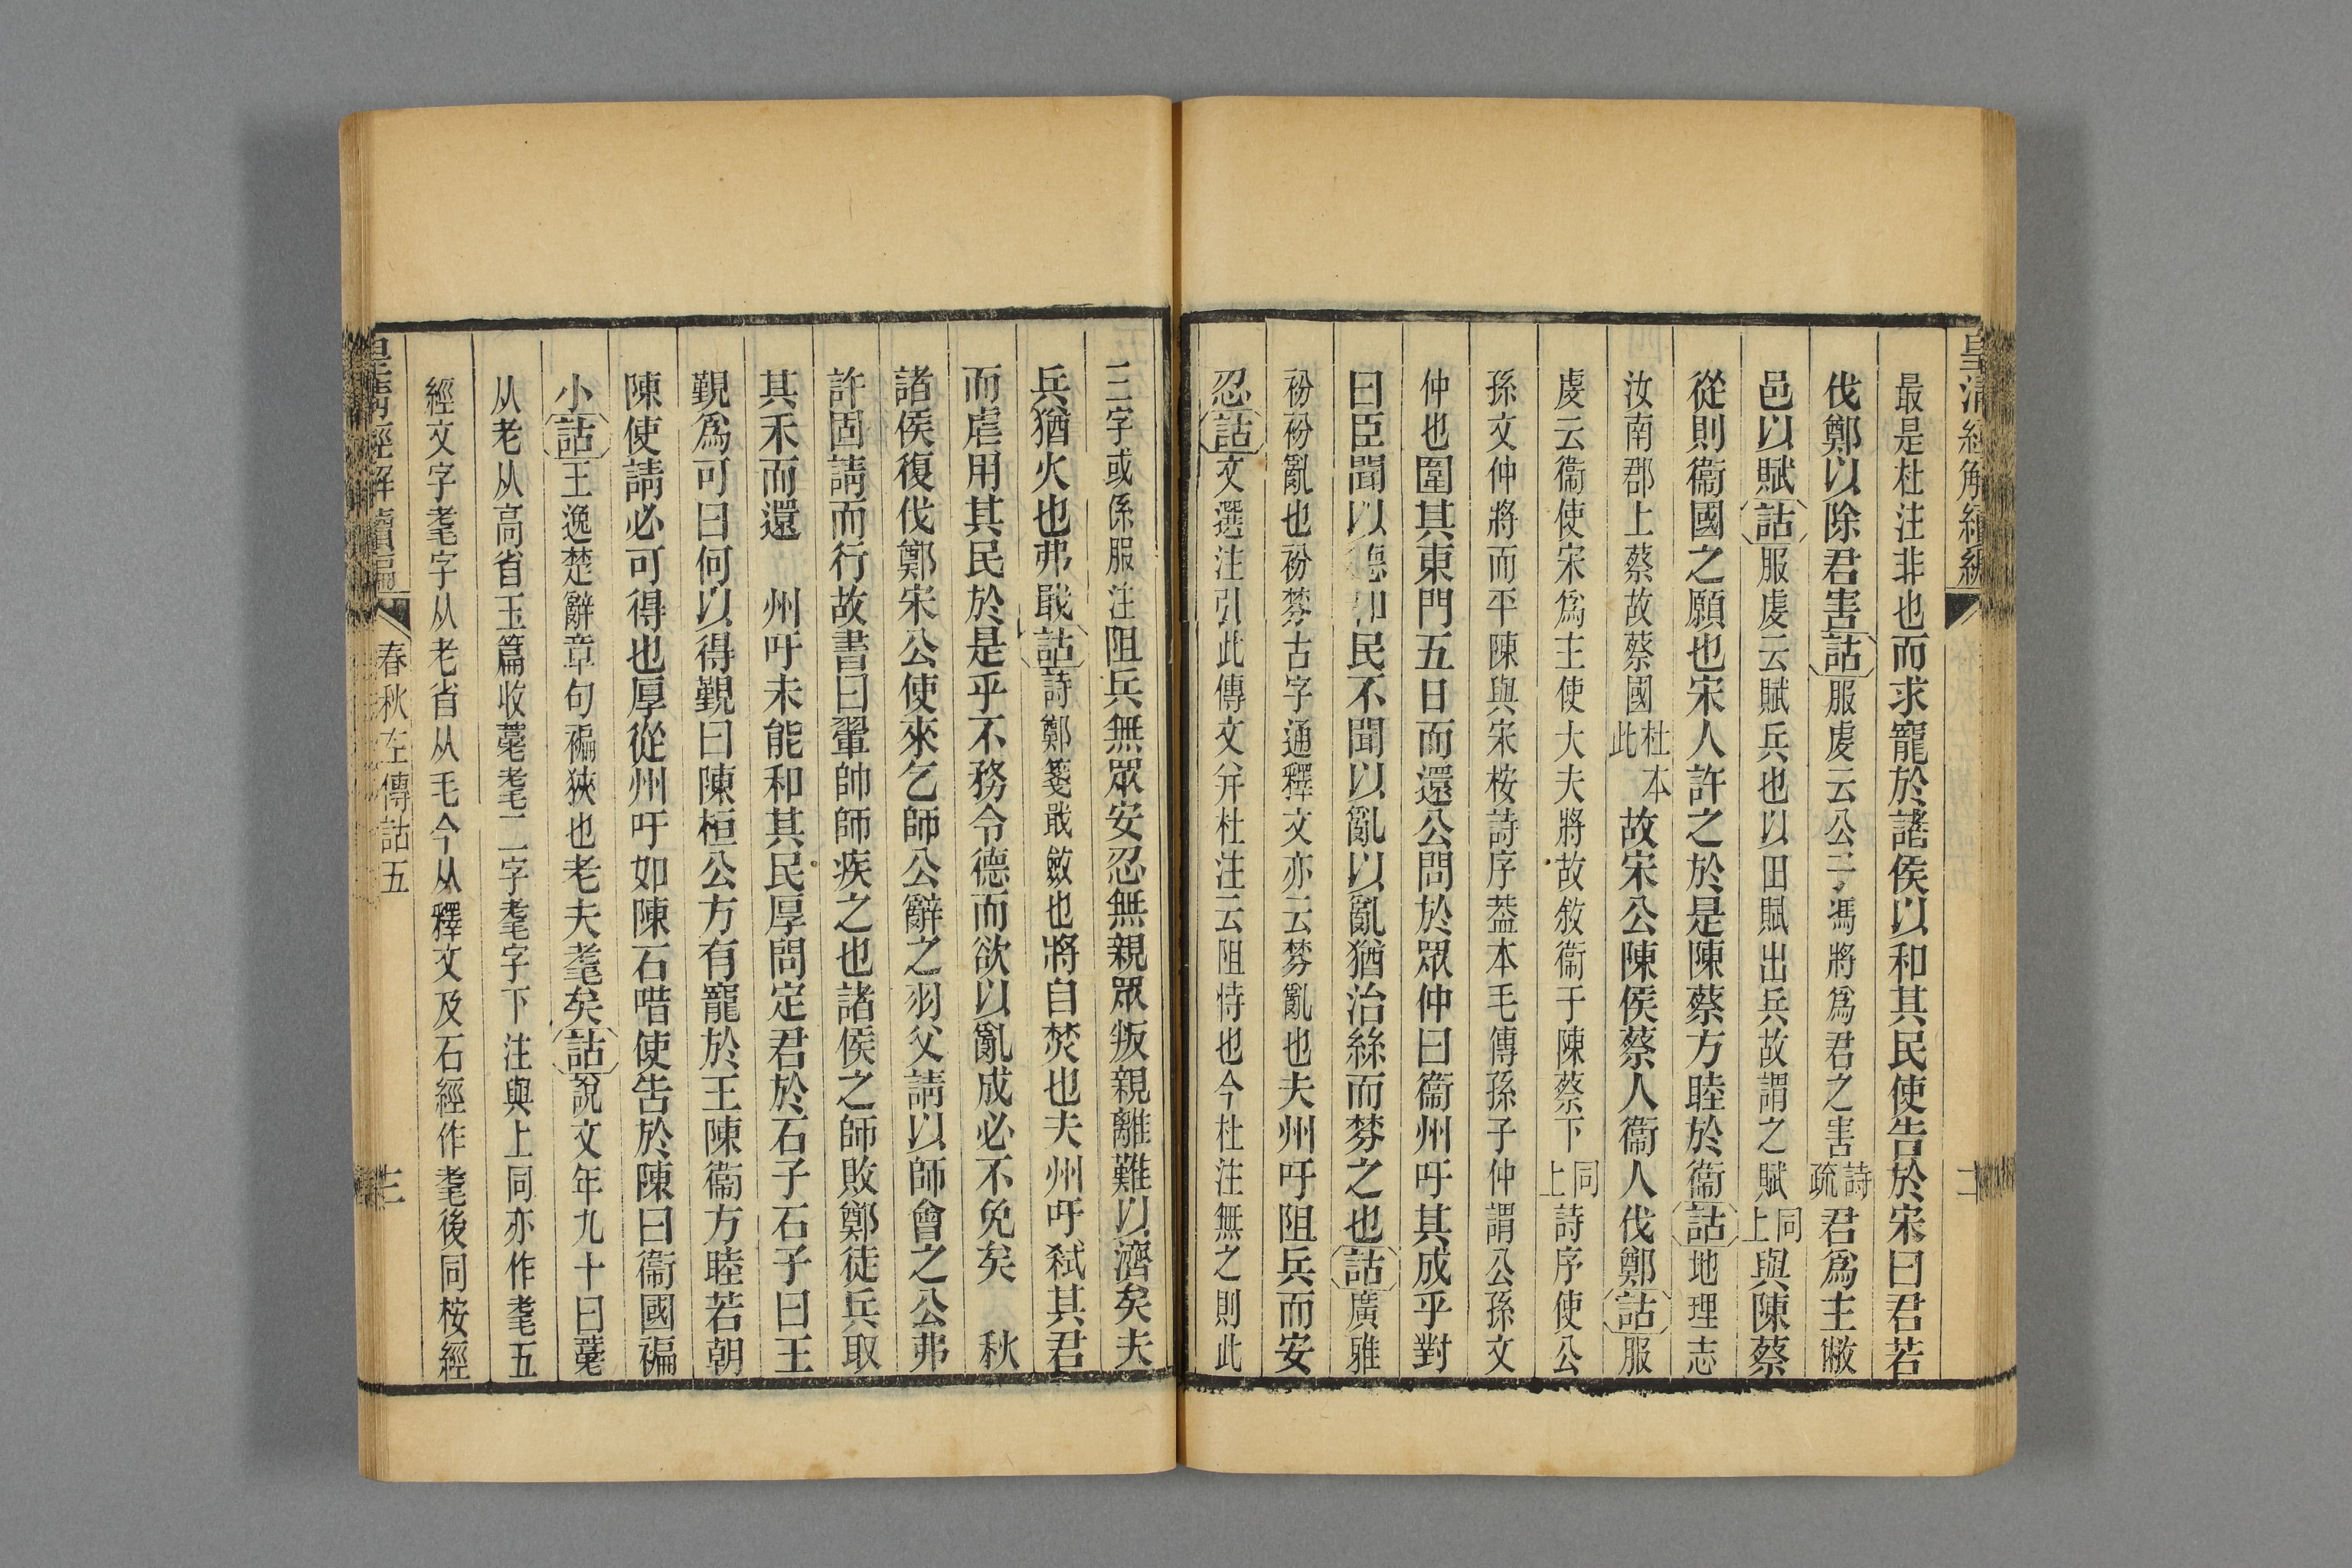 皇清經解續編
二
最是杜注非也而求寵於諸侯以和其民使告於宋曰君若
伐鄭以除君害詁服虔云公子馮將爲君之害詩疏君爲主敝
邑以賦詁服虔云賦兵也以田賦出兵故謂之賦同上與陳蔡
從則衞國之願也宋人許之於是陳蔡方睦於衞詁地理志
汝南郡上蔡故蔡國杜本此故宋公陳侯蔡人衞人伐鄭詁服
虔云衞使宋爲主使大夫將故敘衞于陳蔡下同上詩序使公
孫文仲將而平陳與宋桉詩序葢本毛傳孫子仲謂公孫文
仲也圍其東門五日而還公問於眾仲曰衞州吁其成乎對
曰臣聞以德和民不聞以亂以亂猶治絲而棼之也詁廣雅
衯衯亂也衯棼古字通釋文亦云棼亂也夫州吁阻兵而安
忍詁文選注引此傳文并杜注云阻恃也今杜注無之則此
三字或係服注阻兵無眾安忍無親眾叛親離難以濟矣夫
兵猶火也弗戢詁詩鄭箋戢斂也將自焚也夫州吁弑其君
而虐用其民於是乎不務令德而欲以亂成必不免矣　秋
諸侯復伐鄭宋公使來乞師公辭之羽父請以師會之公弗
許固請而行故書曰翬帥師疾之也諸侯之師敗鄭徒兵取
其禾而還　州吁未能和其民厚問定君於石子石子曰王
覲爲可曰何以得覲曰陳桓公方有寵於王陳衞方睦若朝
陳使請必可得也厚從州吁如陳石碏使告於陳曰衞國褊
小詁王逸楚辭章句褊狹也老夫耄矣詁說文年九十曰薹
从老从高省玉篇收薹耄二字耄字下注與上同亦作耄五
經文字耄字从老省从毛今从釋文及石經作耄後同桉經
皇清經解續編
春秋左傳詁五
三